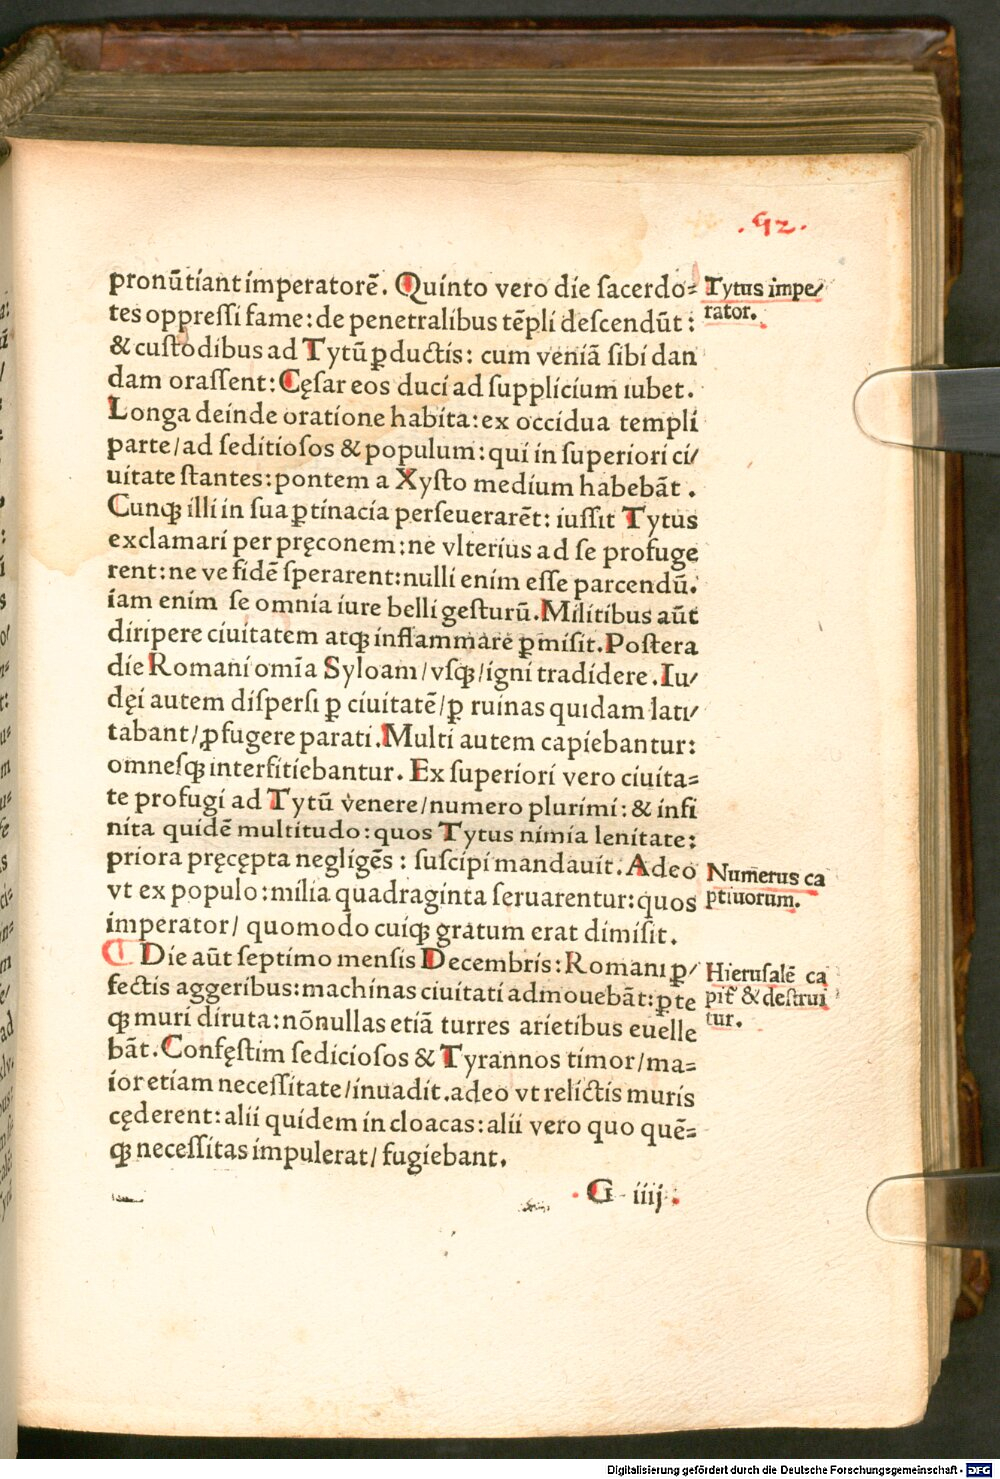 .92.
pronūtiant imperatorē. Quinto vero die ſacerdo=
tes oppreſſi fame: de penetralibus tēpli deſcendūt:
& cuſtodibus ad Tytū ꝑductis: cum veniā ſibi dan
dam oraſſent: Cęſar eos duci ad ſupplicium iubet.
Longa deinde oratione habita: ex occidua templi
parte/ad ſeditioſos & populum: qui in ſuperiori ci/
uitate ſtantes: pontem a Xyſto medium habebāt.
Cunqꝫ illi in ſua ꝑtinacia perſeuerarēt: iuſſit Tytus
exclamari per pręconem: ne vlterius ad ſe profuge
rent: ne ve fidē ſperarent: nulli enim eſſe parcendū.
iam enim ſe omnia iure belli geſturū. Militibus aūt
diripere ciuitatem atqꝫ inflammare ꝑmiſit. Poſtera
die Romani omīa Syloam/vſqꝫ/igni tradidere. Iu/
dęi autem diſperſi ꝑ ciuitatē/ꝑ ruinas quidam lati/
tabant/ꝓfugere parati. Multi autem capiebantur:
omneſqꝫ interfitiebantur. Ex ſuperiori vero ciuita=
te profugi ad Tytū venere/numero plurimi: & infi
nita quidē multitudo: quos Tytus nimia lenitate:
priora pręcępta negligēs: ſuſcipi mandauit. Adeo
vt ex populo: milia quadraginta ſeruarentur: quos
imperator/ quomodo cuiqꝫ gratum erat dimiſit.
¶ Die aūt ſeptimo menſis Decembris: Romani ꝑ/
fectis aggeribus: machinas ciuitati admouebāt: ꝑte
qꝫ muri diruta: nōnullas etiā turres arietibus euelle
bāt. Confęſtim ſedicioſos & Tyrannos timor/ma=
ior etiam neceſſitate/inuadit. adeo vt relictis muris
cęderent: alii quidem in cloacas: alii vero quo quē=
qꝫ neceſſitas impulerat/ fugiebant.
G iiij
Tytus impe/
rator.
Numerus ca
ptiuorum.
Hieruſalē ca
pit̄ & deſtrui
tur.
Digitalisierung gefördert durch die Deutsche Forschungsgemeinschaft - DFG